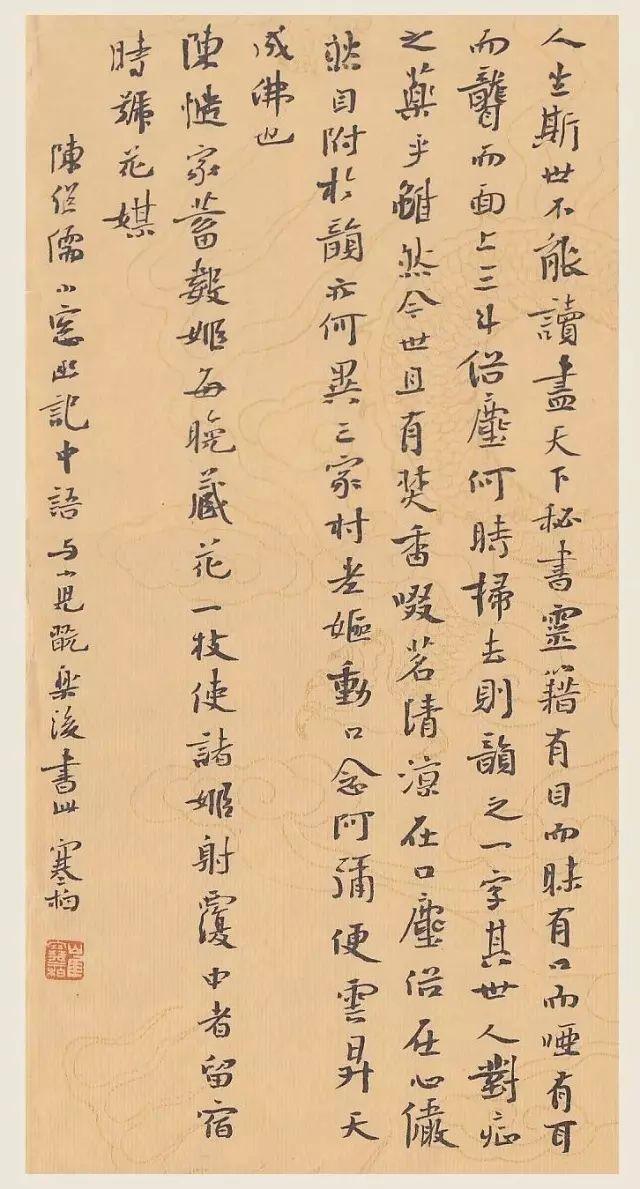 人生斯世不能讀盡天下秘書靈籍有目而眛有口而啞有耳
而聾而面上三斗俗塵何時掃去則韻之一字其世人對症
之藥乎雖然今世且有焚香啜茗清涼在口塵俗在心儼
然自附於韻亦何異三家村老嫗動口念阿彌便雲昇天
成佛也
陳慥家蓄數姬每晚藏花一枝使諸姬射覆中者留宿
時號花媒
陳継儒小窓幽記中語与小児翫樂後書此 寒柏